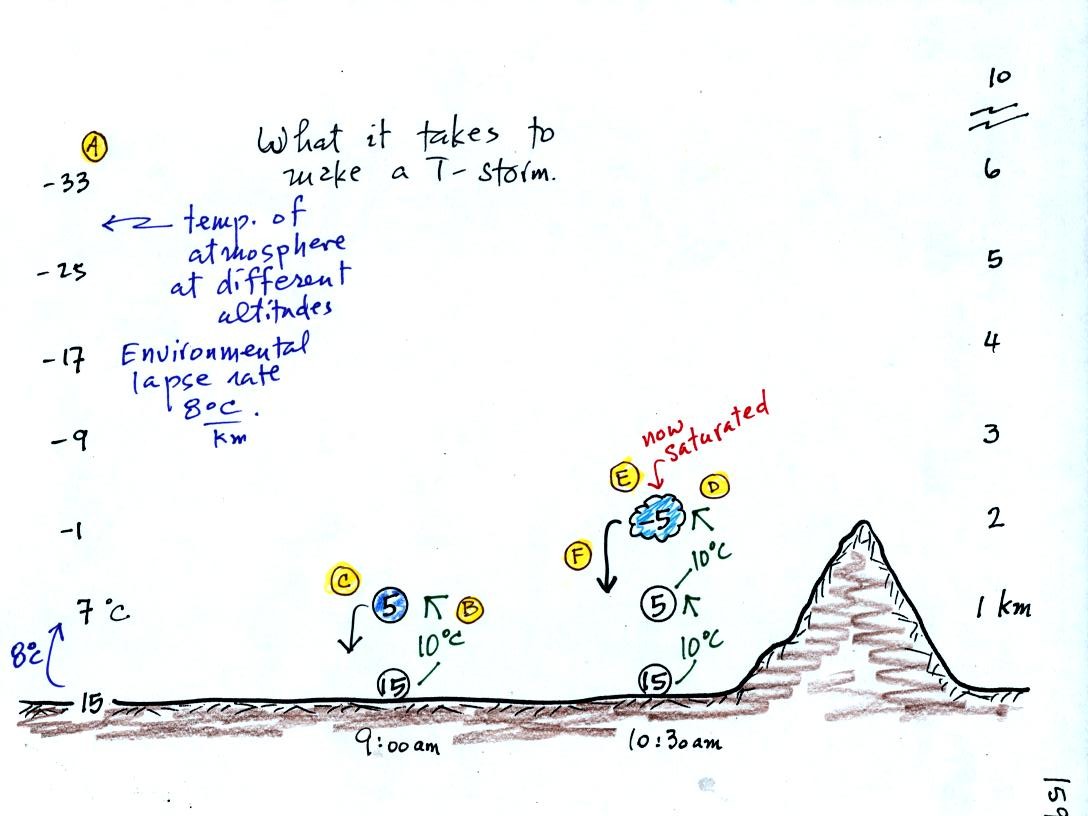 10
A
What it takes to
make a T-storm.
-33
6
temp. of
atmosphere
at different
altitudes
-25
5
-17
4
Environmental
lapse rate
8°C
km
.
-9
3
now
saturated
E
D
-1
-5
2
F
10°C
C
7 °C
5
B
5
1 km
8°C
10°C
10°C
15
15
15
9:00am
10:30am
159